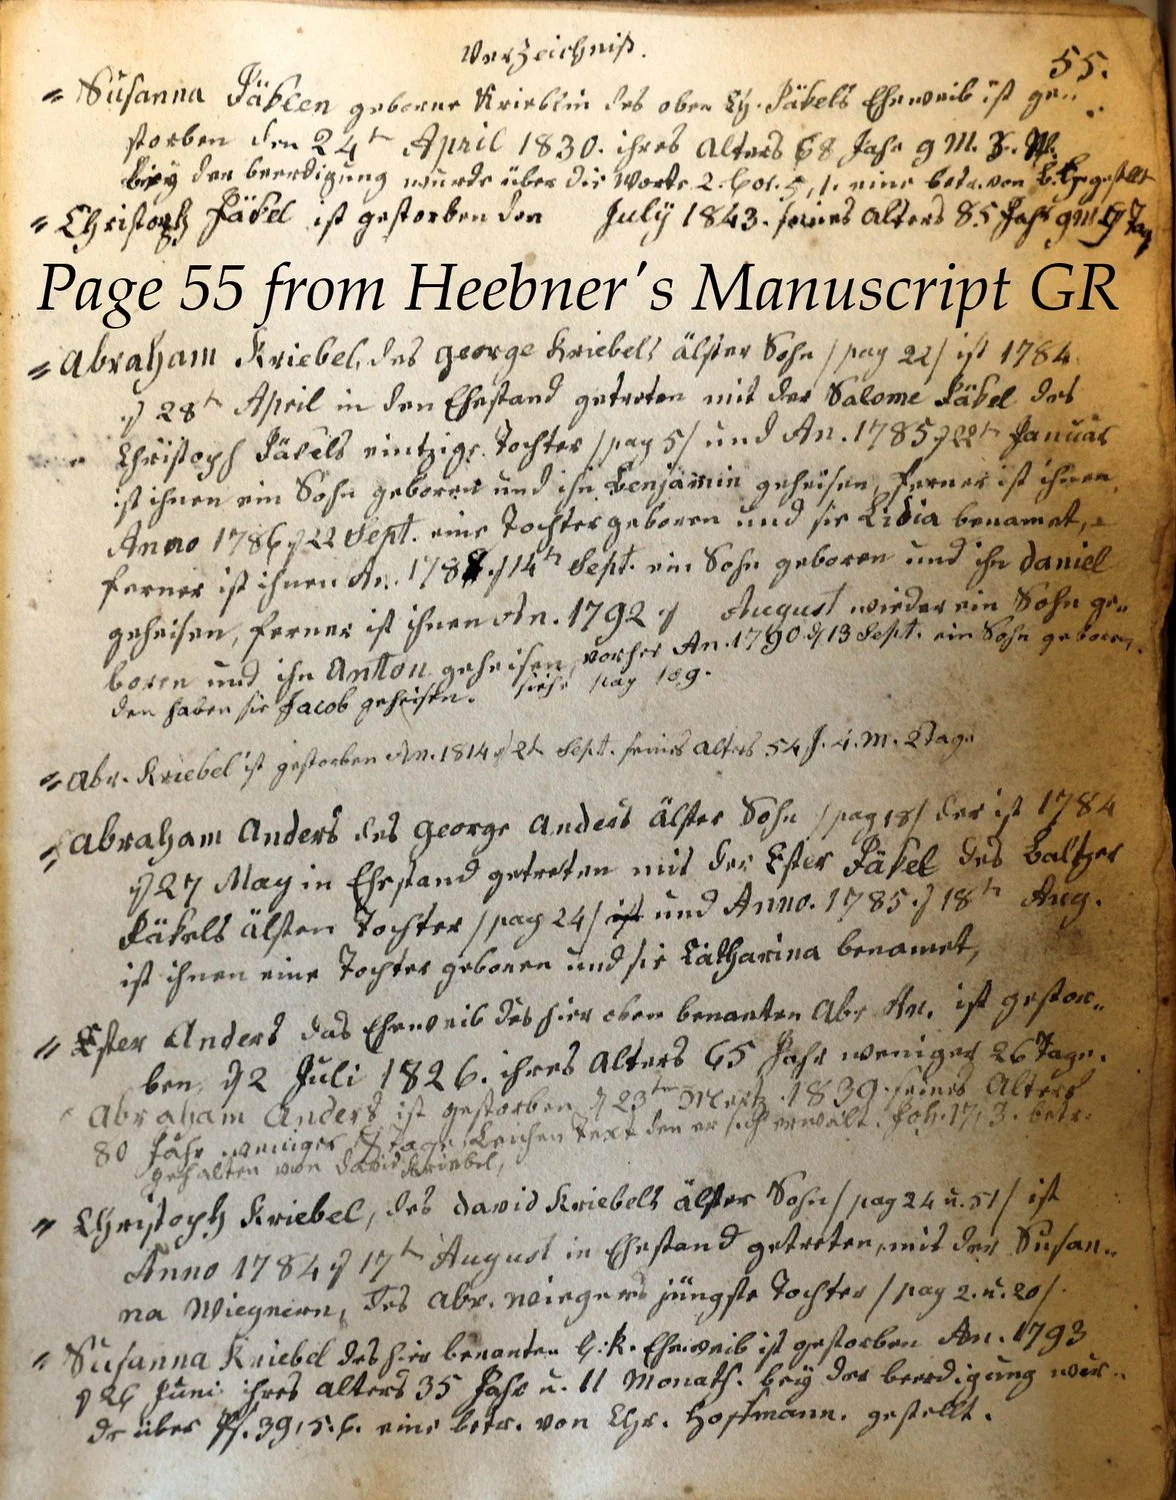 Verzeichniß.
55.
" Susanna Jäklen geborne Krieblin des oben Ch. Jäkels Eheweib ist ge„
storben den 24th April 1830. ihres Alters 68 Jahr 9 M. 3. W.
bey der beerdigung wurde über die Worte 2. Cor. 5, 1. eine betr. von gestellt
" Christoph Jäkel ist gestorben den July 1843. seines Alters 85 Jahr 9 M Tag
Page 55 from Heebner's Manuscript GR
" Abraham Kriebel, des George Kriebels älster Sohn / pag 22 / ist 1784
d 28th April in den Ehestand getreten mit der Salome Jäkel des
Christoph Jäkels eintzige Tochter / pag 5 / und An. 1785 d 22th Januar
ist ihnen ein Sohn geboren und ihn Benjamin geheisen, ferner ist ihnen
Anno 1786 d 22 Sept. eine Tochter geboren und sie Lidia benamet,
ferner ist ihnen An. 1788. d 14th Sept. ein Sohn geboren und ihn Daniel
geheisen, ferner ist ihnen An. 1792 d August wieder ein Sohn ge„
boren und ihn Anton geheisen, vorher An. 1790 d 13 Sept. ein Sohn geboren,
den haben sie Jacob geheisen. siehe pag 109.
" Abr. Kriebel ist gestorben An. 1814 d 21 Sept. seines Alters 54 J. 4. M. 2 Tage
" Abraham Anders des George Anders älster Sohn / pag 18 / der ist 1784
d 27 May in Ehestand getreten mit der Ester Jäkel des Baltzer
Jäkels älsten Tochter / pag 24 / ist und Anno. 1785. d 18th Aug.
ist ihnen eine Tochter geboren und sie Catharina benamet,
" Ester Anders das Eheweib des hier oben benanten Abr An. ist gestor„
ben d 2 Juli 1826. ihres Alters 65 Jahr weniger 26 Tage.
Abraham Anders ist gestorben d 23th Mertz. 1839. seines Alters
80 Jahr weniger 8 tage. Leichen Text den er sich erwält. Joh. 17, 3. betr.
gehalten von David Kriebel,
" Christoph Kriebel, des David Kriebels älster Sohn / pag 24 u. 51 / ist
Anno 1784 d 17th August in Ehestand getreten, mit der Susan„
na Wiegnern, des Abr. Wiegners jüngste Tochter / pag 2. u. 20 /.
" Susanna Kriebel des hier benanten C. K. Eheweib ist gestorben An. 1793
d 26 Juni ihres Alters 35 Jahr u. 11 Monath. bey der beerdigung wur„
de über Ps. 39, 5. 6. eine betr. von Chr. Hoffmann. gestellt.